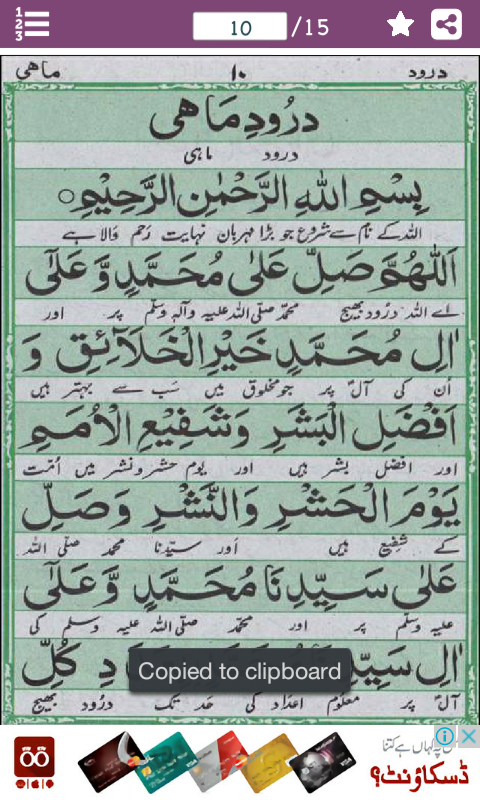 1
2
3
10 /15
درود ۱۰ ماہی
درُودِ مَاهی
درود ماہی
بِسْمِ اللهِ الرَّحْمٰنِ الرَّحِيْمِ
اللہ کے نام سے شروع جو بڑا مہربان نہایت رَحم وَالا ہے
اَللّٰهُمَّ صَلِّ عَلٰى مُحَمَّدٍ وَّ عَلٰٓى
اے اللہ درُود بھیج محمّد صلّی اللہ علیہ وآلہٖ وسلّم پر اور
اٰلِ مُحَمَّدٍ خَيْرِ الْخَلَآئِقِ وَ
اُن کی آلؑ پر جو مخلوق میں سَب سے بہتر ہیں
اَفْضَلِ الْبَشَرِ وَشَفِيْعِ الْاُمَمِ
اور افضل بشر ہیں اور یوم حشر و نشر میں اُمّت
يَوْمَ الْحَشْرِ وَالنَّشْرِ وَصَلِّ
کے شفیع ہیں اَور سیّدنا محمّد صلّی اللہ
عَلٰى سَيِّدِنَا مُحَمَّدٍ وَّعَلٰٓى
علیہ وسلّم پر اور محمّد صلّی اللہ علیہ وسلّم کی
اٰلِ دِ كُلِّ
Copied to clipboard
آلؑ پر معلوم اعداد کی حَد تک درُود بھیج
پہ کہاں ہے کتنا
ڈسکاؤنٹ؟
VISA